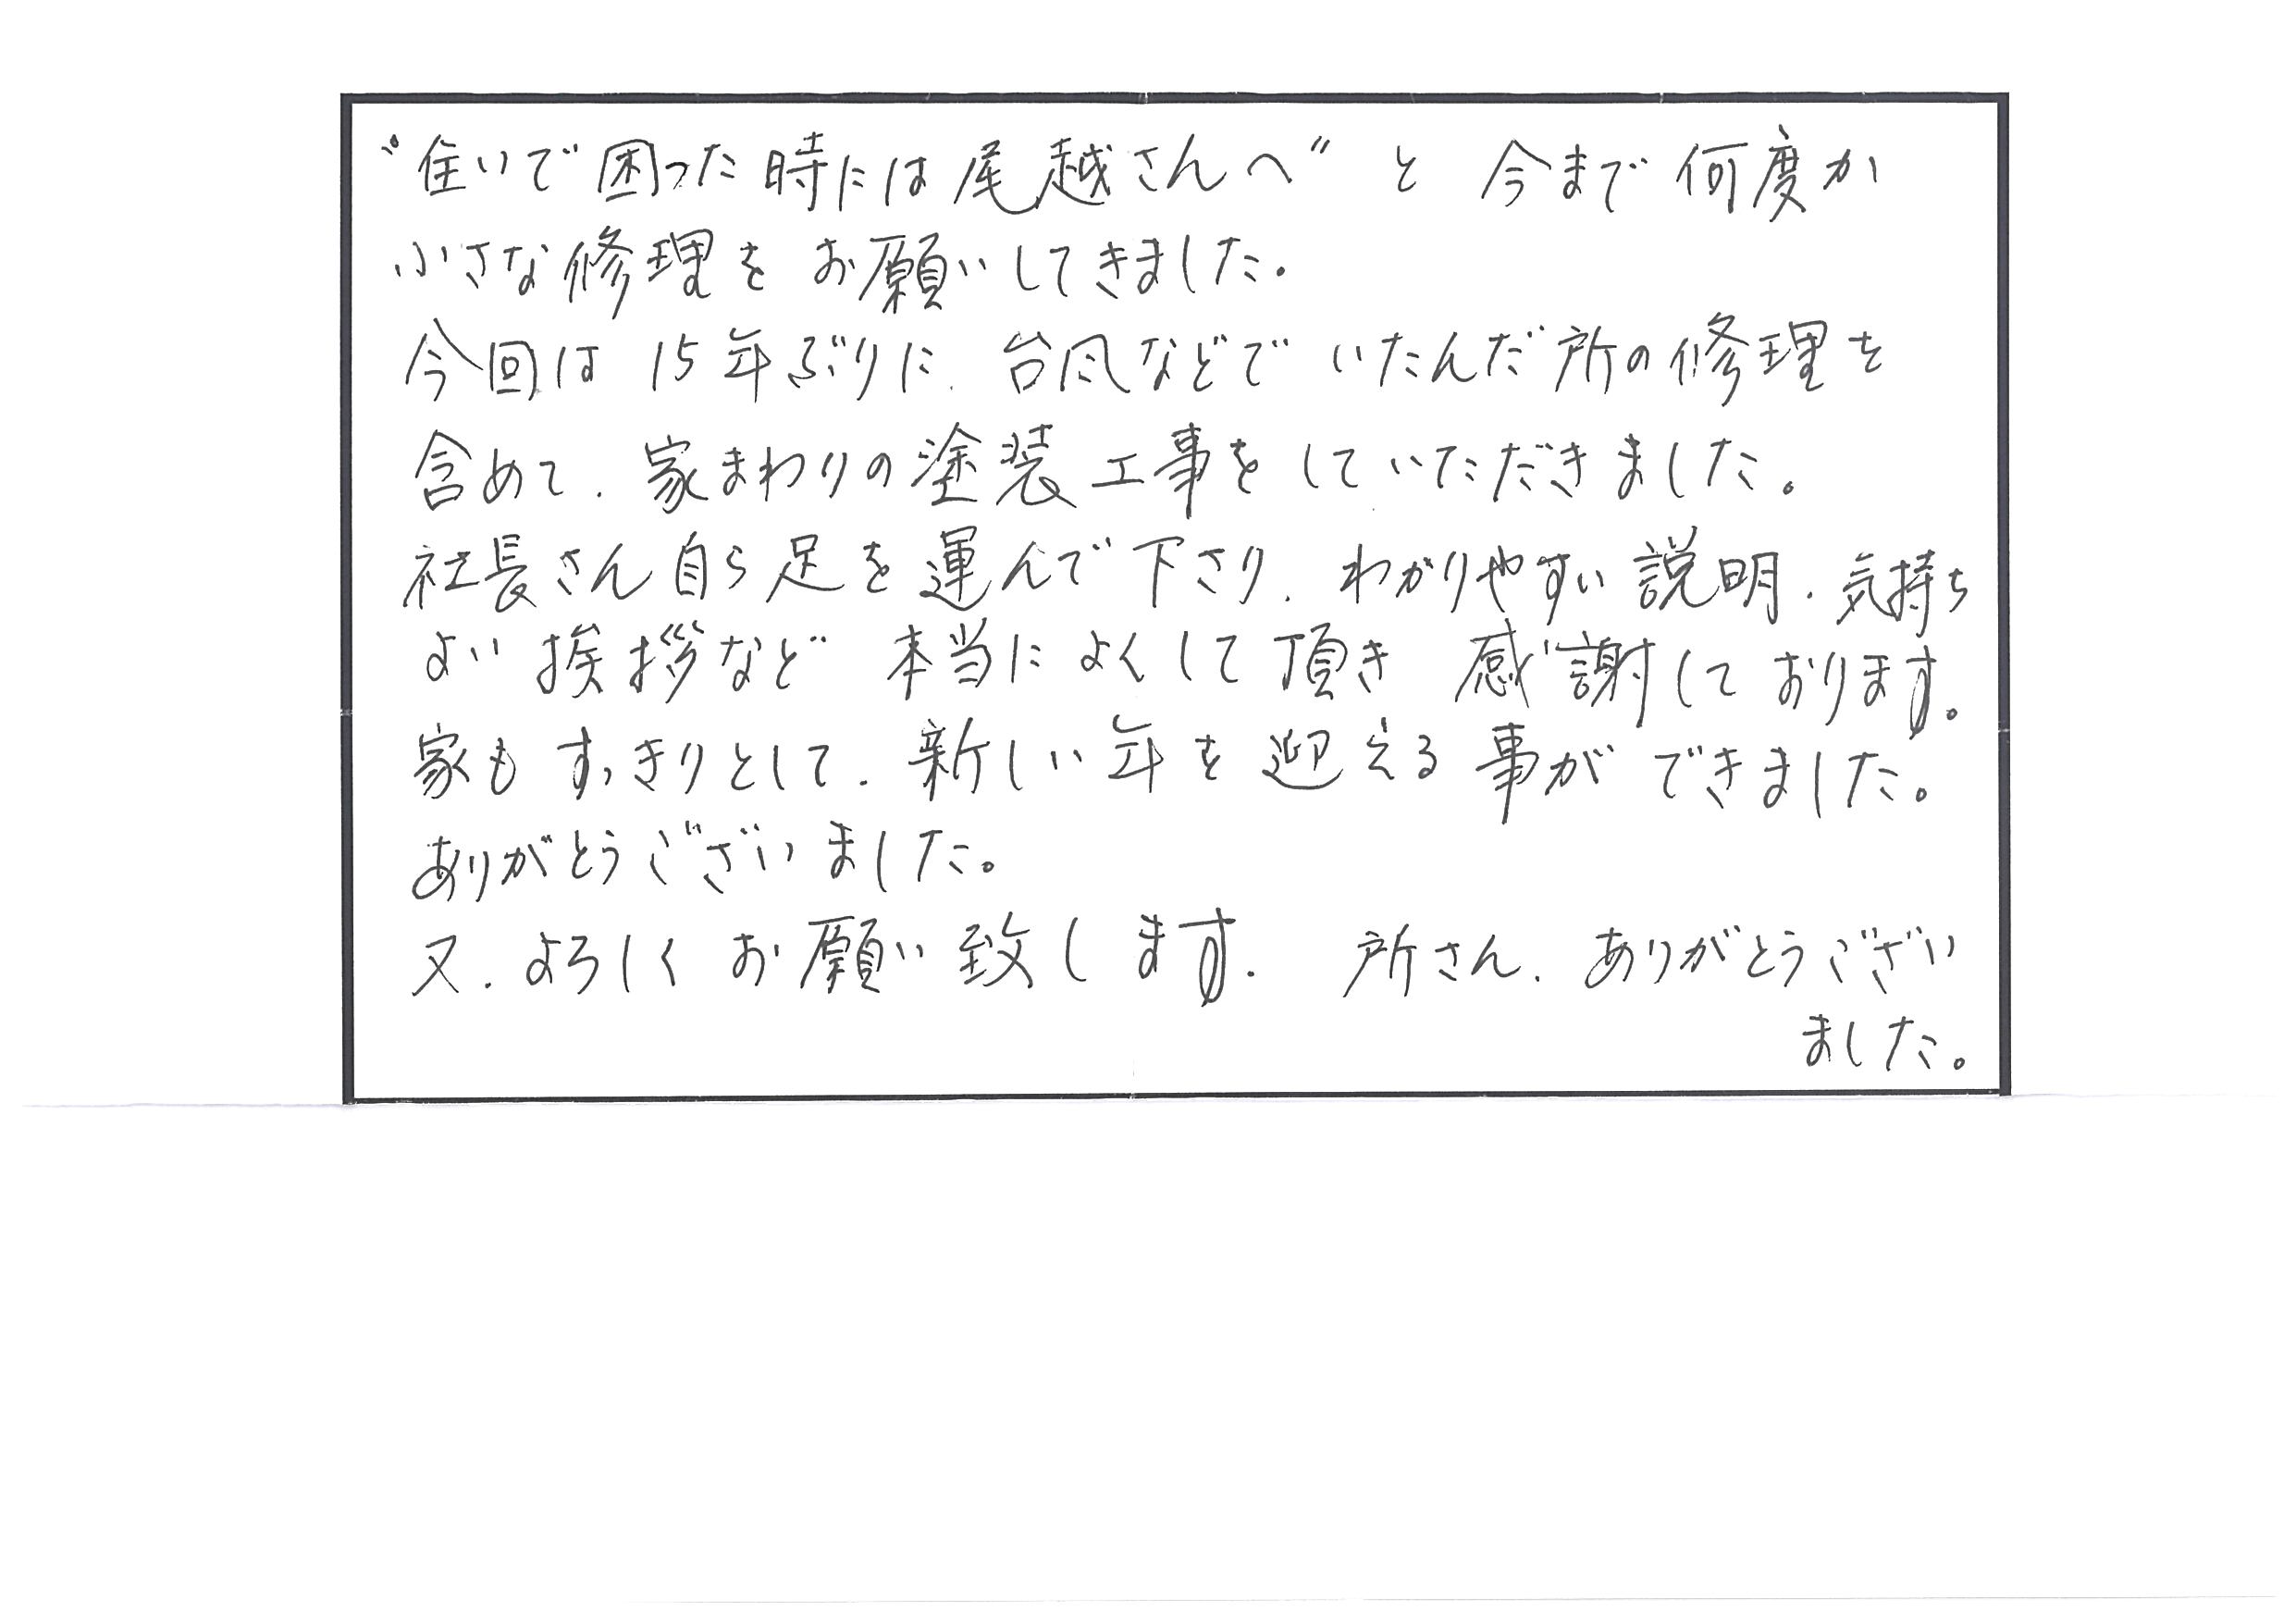 “住いで困った時には尾越さんへ” と 今まで何度か
小さな修理を お願いしてきました.
今回は 15年ぶりに、台風などで いたんだ所の修理を
含めて、家まわりの塗装工事をしていただきました。
社長さん自ら足を運んで下さり、わかりやすい説明、気持ち
よい 挨拶など 本当によくして頂き 感謝しております。
家も すっきりとして、新しい年を迎える事ができました。
ありがとうございました。
又、よろしく お願い致します. 所さん、ありがとうござい
ました。